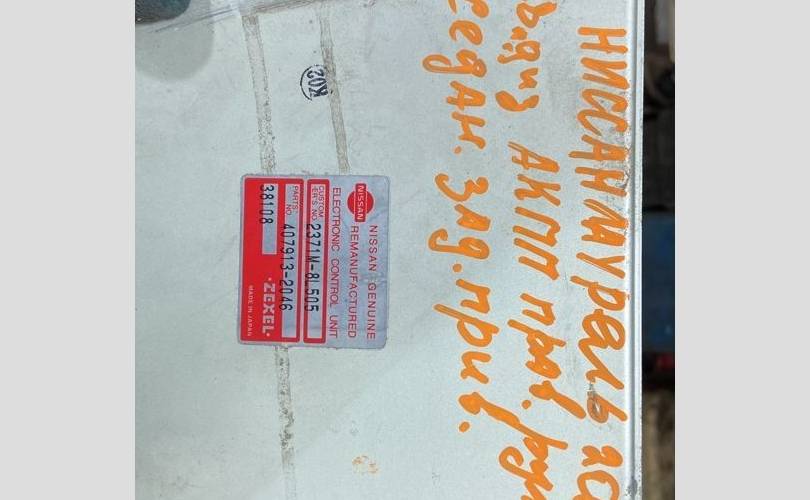 НИССАН лаурель 20
диз АКПП прав.
седан. зад.прив.
NISSAN
NISSAN GENUINE
REMANUFACTURED
ELECTRONIC CONTROL UNIT
CUSTOM
ER'S NO. 2371M-8L505
PARTS
NO. 407913-2046
38108 ·ZEXEL·
MADE IN JAPAN